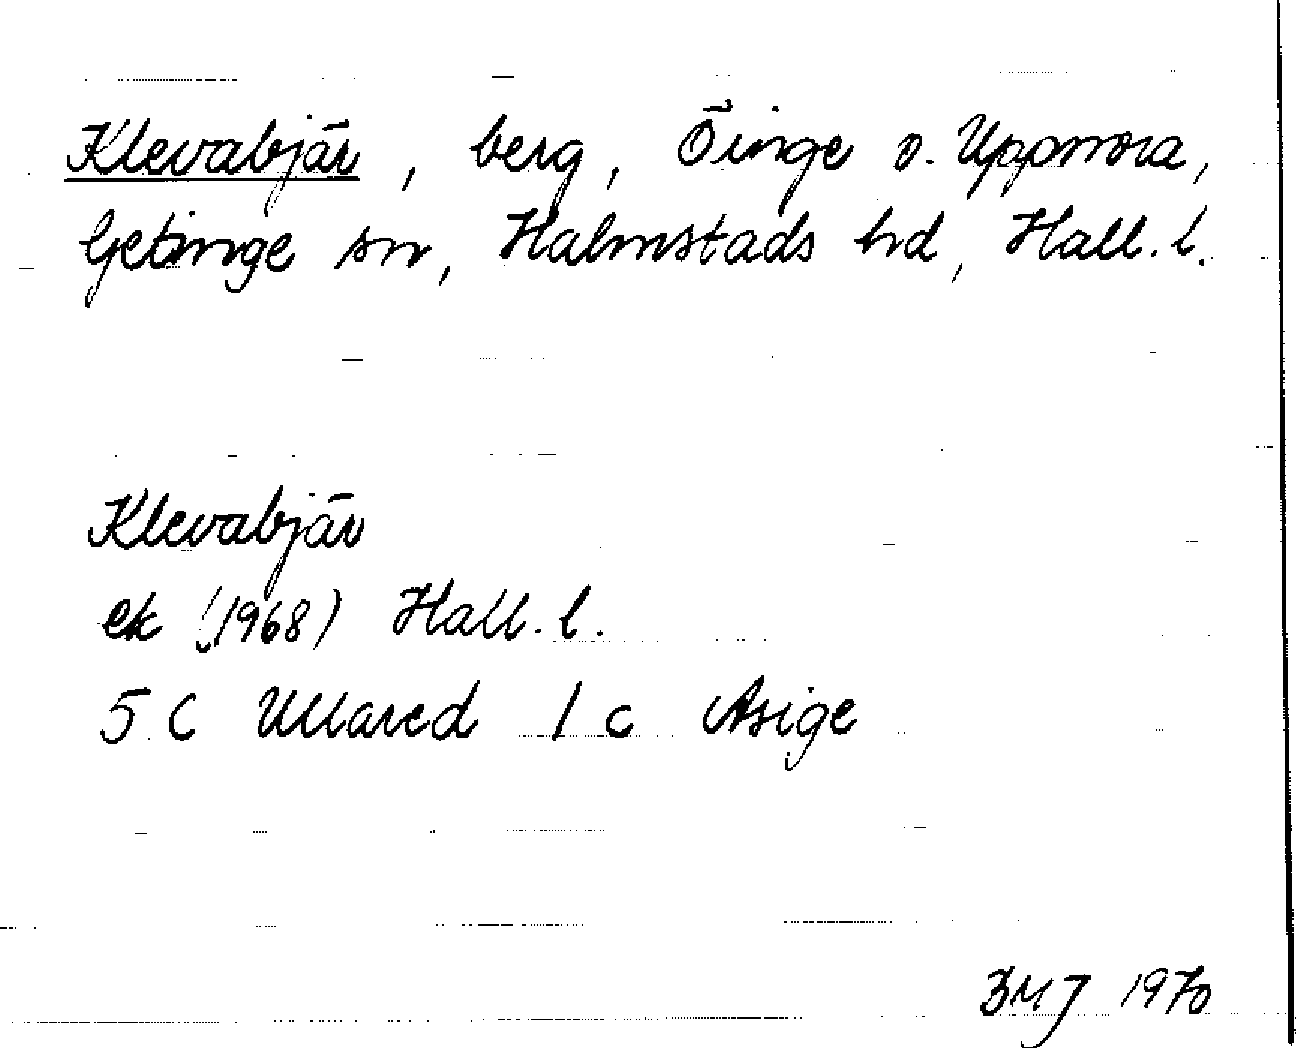 Klevabjär, berg, Öinge o. Uppnora,
Getinge sn, Halmstads hd, Hall. l.
Klevabjär
ek (1968) Hall. l.
5 C Ullared 1 c Asige
BMJ 1970